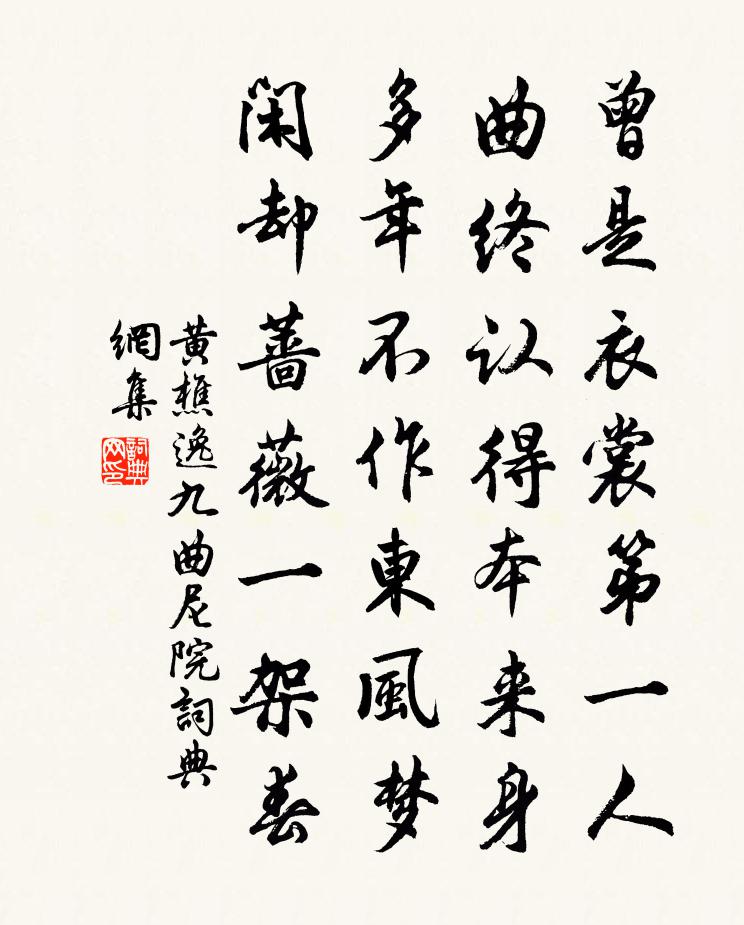 曾是衣裳第一人
曲终认得本来身
多年不作東風梦
闲却蔷薇一架春
黄樵逸九曲尼院詞典
網集
詞典
网印